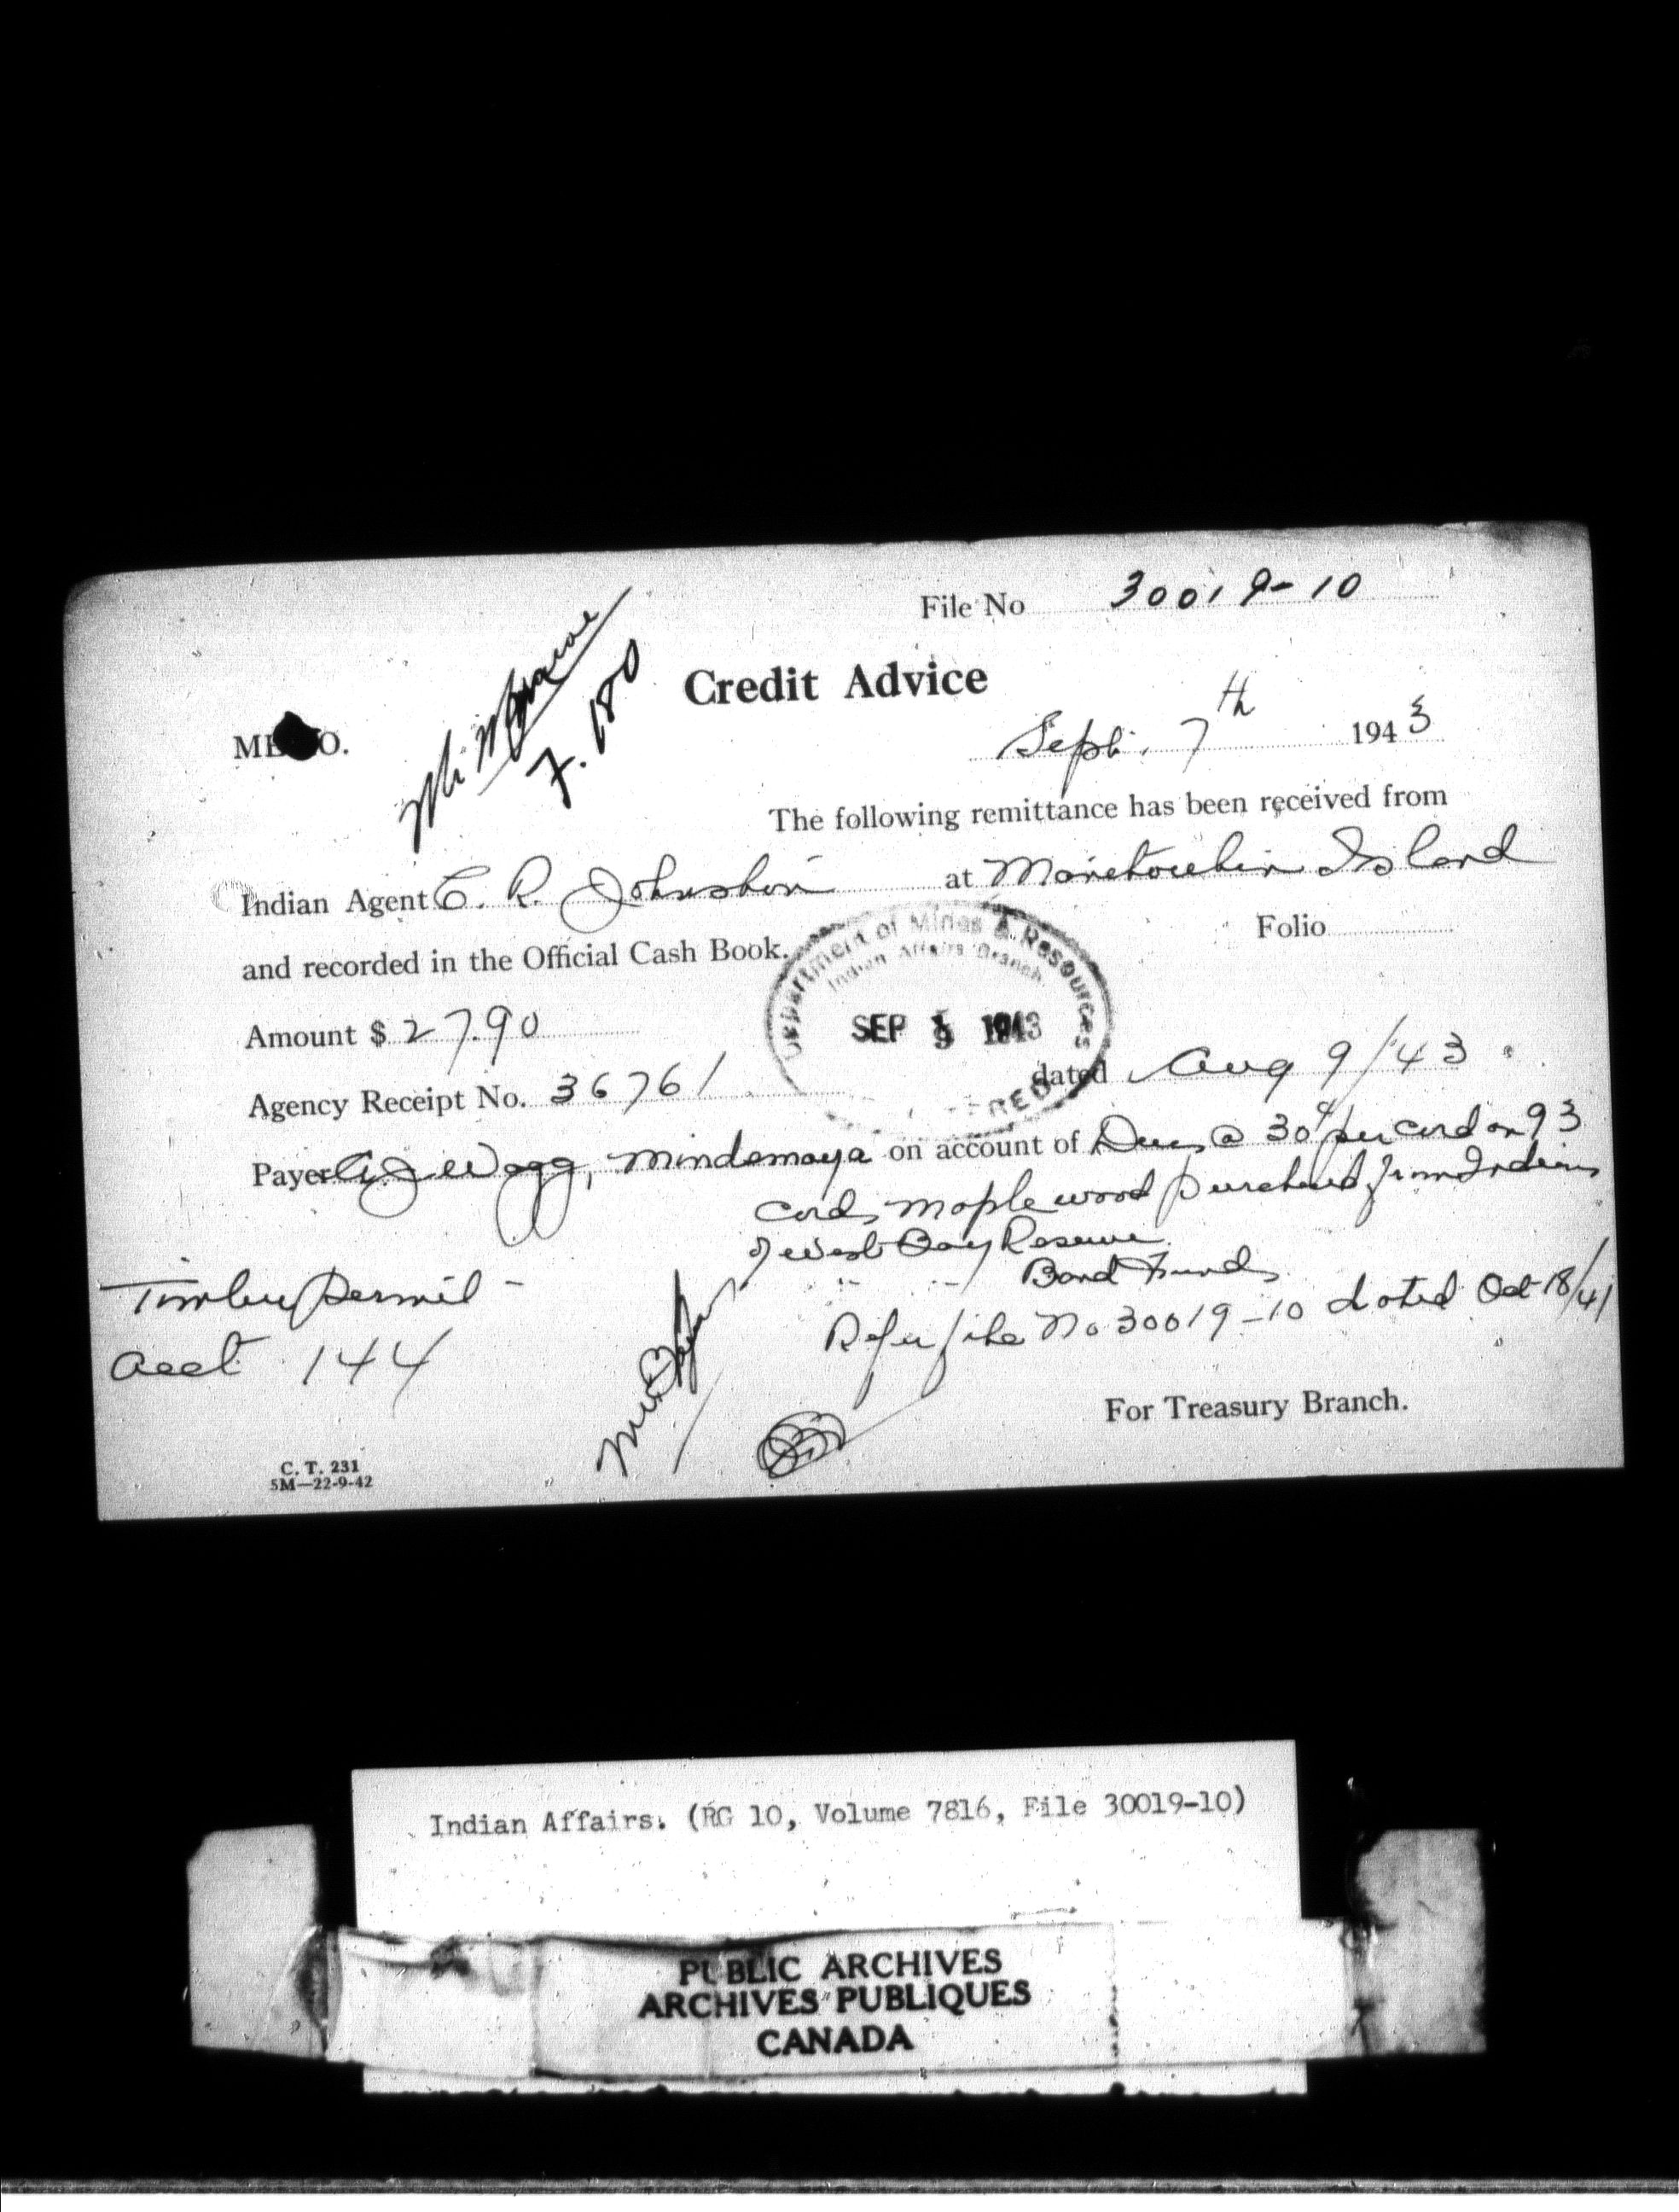 File No 30019-10
Credit Advice
MEMO.
F. 180
Sept. 7th 1943
The following remittance has been received from
Indian Agent C. R. Johnston at Manitoulin Island
and recorded in the Official Cash Book.
Folio
Department of Mines & Resources
Indian Affairs Branch
SEP 1943
Amount $ 27.90
Agency Receipt No. 36761 dated Aug 9/43
Payer Wagg, Mindemoya on account of Dues @ 30¢ per cord on 93
cords maple wood purchased from Indians
of West Bay Reserve
Band Funds
Refer file No 30019-10 dated Oct 18/41
Timber permit -
acct 144
For Treasury Branch.
C. T. 231
5M—22-9-42
Indian Affairs. (RG 10, Volume 7816, File 30019-10)
PUBLIC ARCHIVES
ARCHIVES PUBLIQUES
CANADA